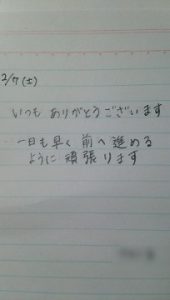 2/7(土)
いつも ありがとうございます
一日も早く 前へ 進める
ように 頑張ります